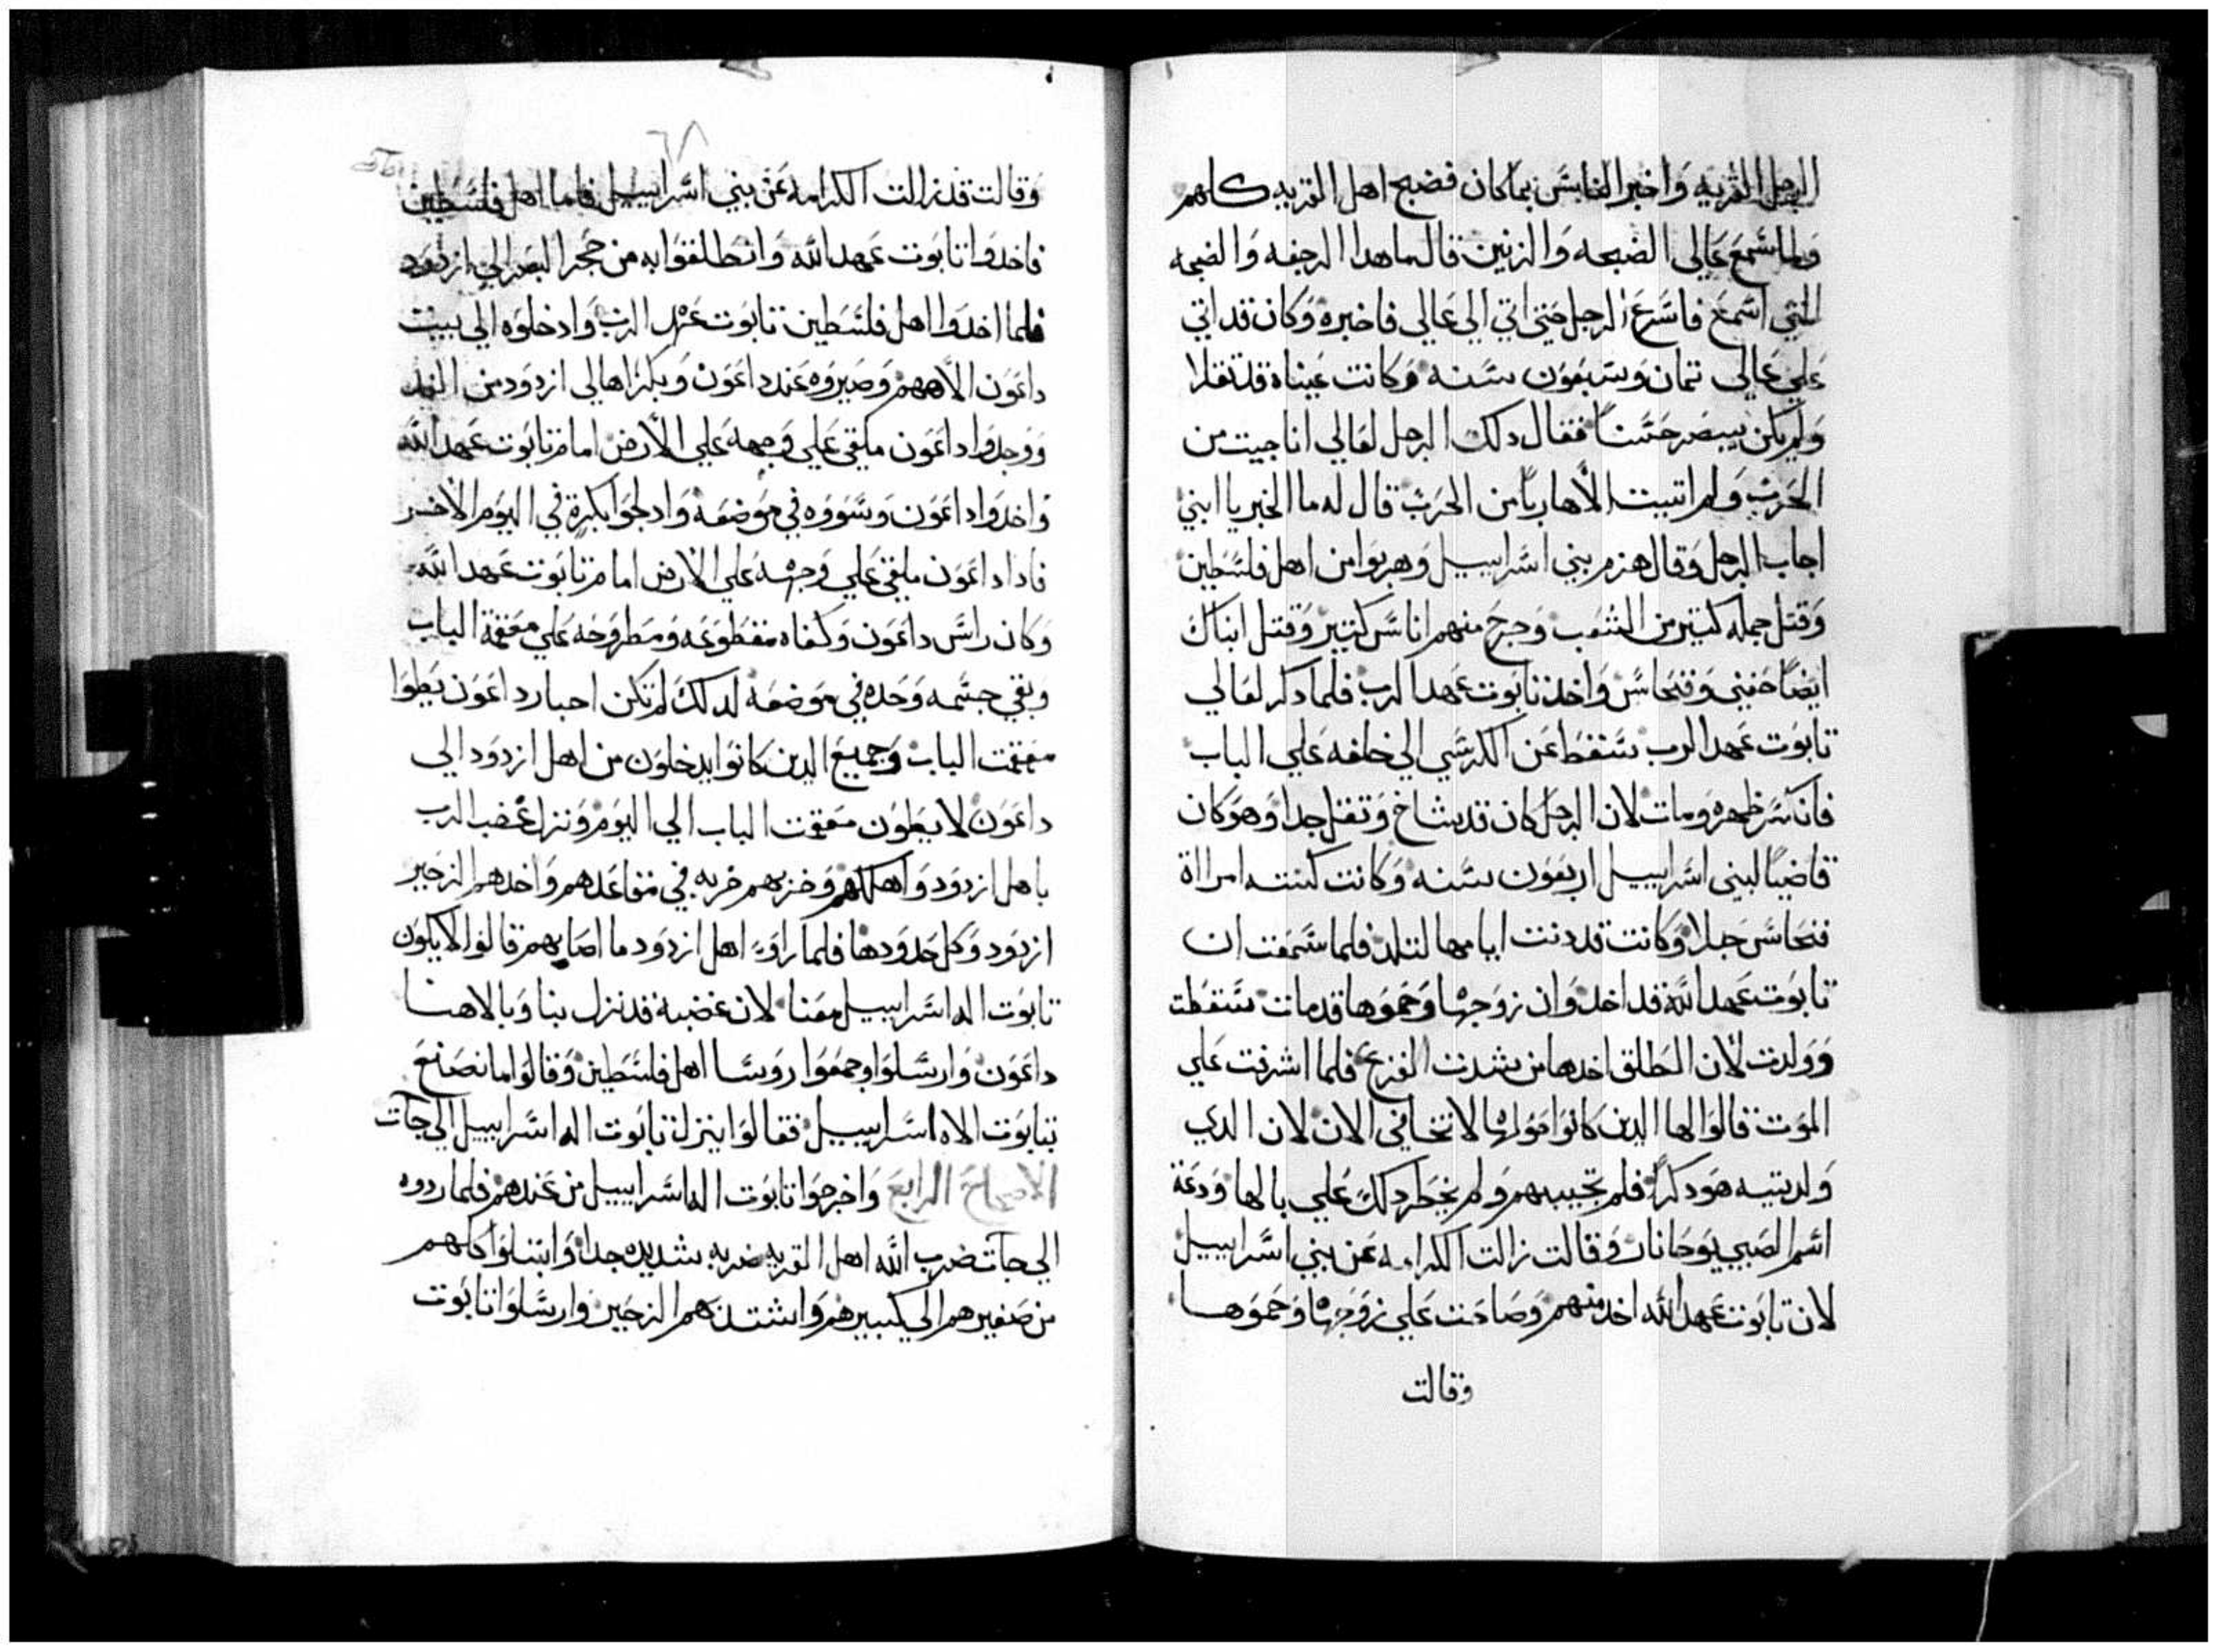 الرجل القريه واخبر الناس بما كان فضج اهل القريه كلهم
ولما سمع عالي الضجه والرنين قال ما هدا الرجفه والضجه
التي اسمع فاسرع الرجل حتي اتي الي عالي فاخبره وكان قد اتي
علي عالي تمان وسبعون سنه وكانت عيناه قد تقلا
ولم يكن يبصر حسنًا فقال دلك الرجل لعالي انا جيت من
الحرب ولم اتيت الا هاربًا من الحرب قال له ما الخبر يا ابني
اجاب الرجل وقال هزم بني اسراييل وهربوا من اهل فلسطين
وقتل جمله كتير من الشعب وجرح منهم اناس كتير وقتل ابناك
ايضًا حفني وفنحاس واخد تابوت عهد الرب فلما دكر لعالي
تابوت عهد الرب سقط عن الكرسي الي خلفه علي الباب
فانكسر ظهره ومات لان الرجل كان قد شاخ وتقل جدا وهو كان
قاضيًا لبني اسراييل اربعون سنه وكانت كنته امراة
فنحاس حبلا وكانت قد دنت ايامها لتلد فلما سمعت ان
تابوت عهد الله قد اخد وان زوجها وحموها قد مات سقطت
وولدت لان الطلق اخدها من شدت الفزع فلما اشرفت علي
الموت قالوا لها الدين كانوا حولها لا تخافي الان لان الدي
ولدتيه هو دكرًا فلم تجيبهم ولم يخطر دلك علي بالها ودعة
اسم الصبي يوحانان وقالت زالت الكرامه عن بني اسراييل
لان تابوت عهد الله اخد منهم وصاحت علي زوجها وحموها
وقالت
٦٨
وقالت قد زالت الكرامه عن بني اسراييل فاما اهل فلسطين
فاخدوا تابوت عهد الله وانطلقوا به من حجر البصر الي ازدود
فلما اخدوا اهل فلسطين تابوت عهد الرب وادخلوه الي بيت
داعون الاههم وصيروه عند داعون وبكروا اهالي ازدود من الغد
ووجدوا داعون ملقي علي وجهه علي الارض امام تابوت عهد الله
واخدوا داعون وسووه في موضعه وادلجوا بكرة في اليوم الاخر
فادا داعون ملقي علي وجهه علي الارض امام تابوت عهد الله
وكان راس داعون وكفاه مقطوعه ومطروحه علي معقمة الباب
وبقي جسمه وحده في موضعه لدلك لم تكن احبار داعون يطوا
معقمت الباب وجميع الدين كانوا يدخلون من اهل ازدود الي
داعون لا يطون معقمت الباب الي اليوم ونزل غضب الرب
باهل ازدود واهلكهم وضربهم ضربه في مقاعدهم واخدهم الزحير
ازدود وكل حدودها فلما راو اهل ازدود ما اصابهم قالوا لا يكون
تابوت اله اسراييل معنا لان غضبه قد نزل بنا وبالاهنا
داعون وارسلوا وجمعوا روسا اهل فلسطين وقالوا ما نصنع
بتابوت الاه اسراييل فقالوا ينزل تابوت اله اسراييل الي جآت
الاصحاح الرابع واخرجوا تابوت اله اسراييل من عندهم فلما ردوه
الي جآت ضرب الله اهل القريه ضربه شديده جدا وابتلوا كلهم
من صغيرهم الي كبيرهم واشتد بهم الزحير وارسلوا تابوت